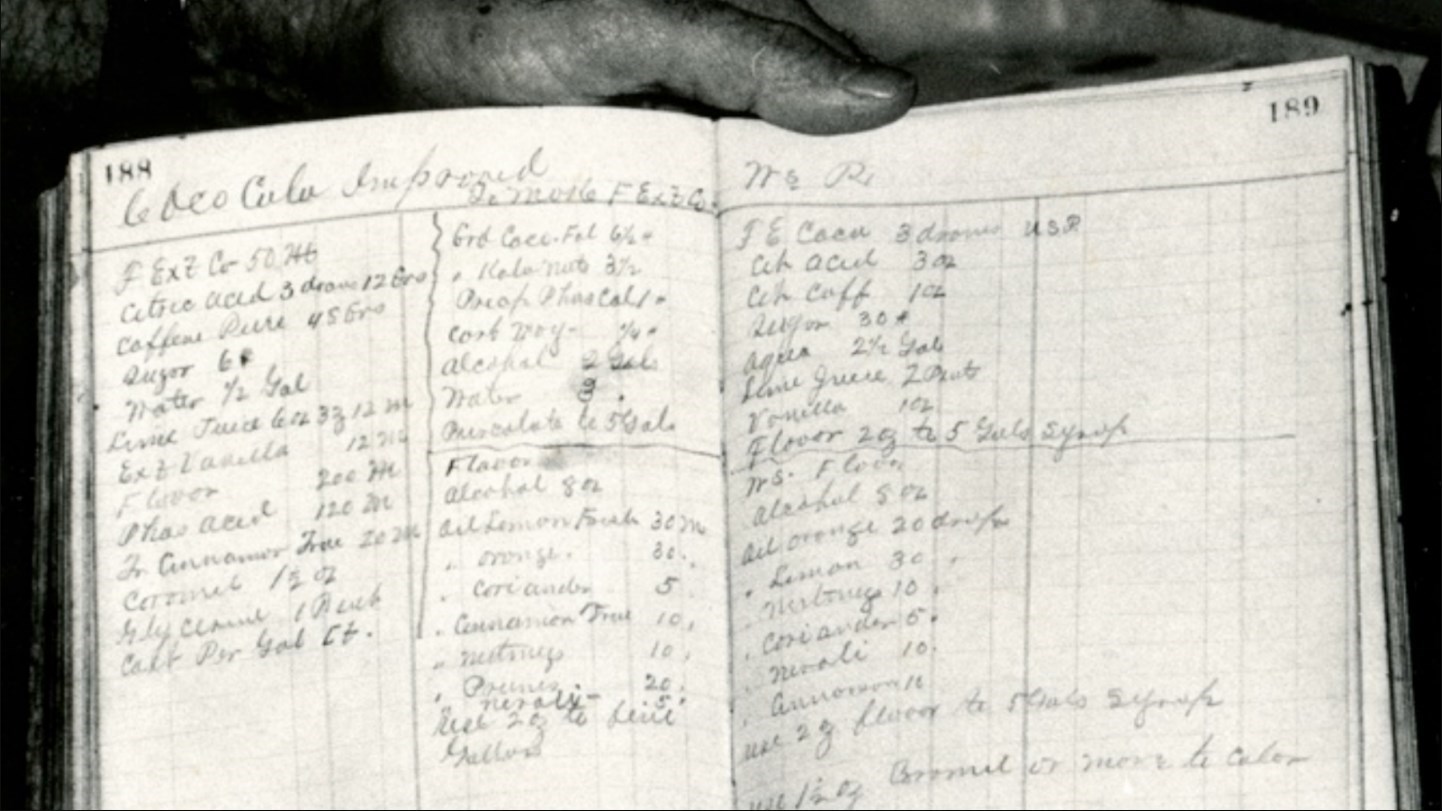 188
Coco Cola Improved
F Ext Co 50 M
Citric acid 3 drams 12 Grs
Caffene Pure 45 Grs
Sugor 6#
Water 1/2 Gal
Lime Juice 6 oz 3z 12 M
Ext Vanilla 12 M
Flavor 200 M
Phos Acid 120 M
Tr Cinnamon True 20 M
Coromel 1½ oz
Glycerine
Cost Per Gal
To Make F Ext Co.
Grd Coca 6½ #
" Kola nuts 3½
Precip Phos Cal 1 "
Carb ¼ "
Alcohol 2 Gals
Water 3 "
Percolate to 5 Gals
Flavor
Alcohol 8 oz
Oil Lemon 30 M
" orange " 30 "
" Coriander 5 "
" Cinnamon True 10 "
" Nutmeg 10 "
" 20 "
neroly - 5 "
Use 2 oz to five
Gallon
189
F E Coca 3 drams U S P
Cit acid 3 oz
Cit Caff 1 oz
Sugor 30 #
Aqua 2½ Gal
Lime Juice 2 Pints
Vanilla 1 oz
Flavor 2 oz to 5 Gals Syrop
Flavor
Alcohol 8 oz
Oil orange 20 drops
" Lemon 30 "
" Nutmeg 10 "
" Coriander 5 "
" Neroli 10 "
" Cinnamon
use 2 oz flavor to 5 Gals Syrop
use 1½ oz or more to color